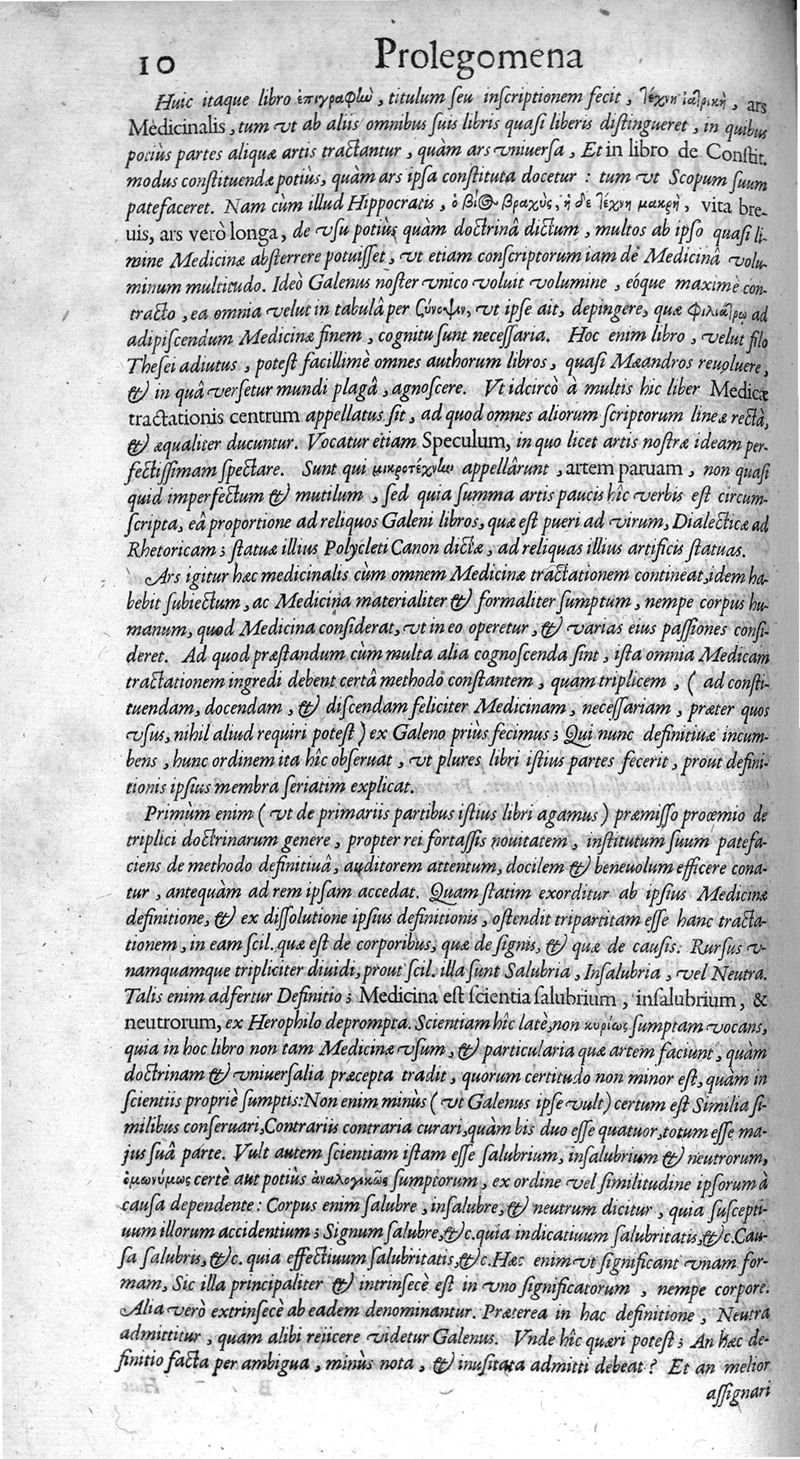 10 Prolegomena
Huic itaque libro ἐπιγραφὼ, titulum ſeu inſcriptionem fecit, Τέχνη ἰατρικὴ, ars
Medicinalis, tum vt ab aliis omnibus ſuis libris quaſi liberis diſtingueret, in quibus
potiùs partes aliquæ artis tractantur, quàm ars vniuerſa, Et in libro de Conſtit.
modus conſtituendæ potiùs, quàm ars ipſa conſtituta docetur : tum vt Scopum ſuum
patefaceret. Nam cùm illud Hippocratis, ὁ βίος βραχὺς, ἡ δὲ τέχνη μακρὴ, vita bre-
uis, ars verò longa, de vſu potiùs quàm doctrinâ dictum, multos ab ipſo quaſi li-
mine Medicinæ abſterrere potuiſſet, vt etiam conſcriptorum iam de Medicinâ volu-
minum multitudo. Ideò Galenus noſter vnico voluit volumine, eóque maximè con-
tracto, ea omnia velut in tabulâ per σύνοψιν, vt ipſe ait, depingere, quæ φιλιάτρῳ ad
adipiſcendum Medicinæ finem, cognitu ſunt neceſſaria. Hoc enim libro, velut filo
Theſei adiutus, poteſt facillimè omnes authorum libros, quaſi Mæandros reuoluere,
& in quâ verſetur mundi plagâ, agnoſcere. Vt idcircò à multis hic liber Medicæ
tractationis centrum appellatus ſit, ad quod omnes aliorum ſcriptorum lineæ rectà,
& æqualiter ducuntur. Vocatur etiam Speculum, in quo licet artis noſtræ ideam per-
fectiſſimam ſpectare. Sunt qui μικροτέχνὼ appellârunt, artem paruam, non quaſi
quid imperfectum & mutilum, ſed quia ſumma artis paucis hîc verbis eſt circum-
ſcripta, eâ proportione ad reliquos Galeni libros, quæ eſt pueri ad virum, Dialecticæ ad
Rhetoricam; ſtatuæ illius Polycleti Canon dictæ, ad reliquas illius artificis ſtatuas.
Ars igitur hæc medicinalis cùm omnem Medicinæ tractationem contineat, idem ha-
bebit ſubiectum, ac Medicina materialiter & formaliter ſumptum, nempe corpus hu-
manum, quod Medicina conſiderat, vt in eo operetur, & varias eius paſſiones conſi-
deret. Ad quod præſtandum cùm multa alia cognoſcenda ſint, iſta omnia Medicam
tractationem ingredi debent certâ methodo conſtantem, quam triplicem, ( ad conſti-
tuendam, docendam, & diſcendam feliciter Medicinam, neceſſariam, præter quos
vſus, nihil aliud requiri poteſt ) ex Galeno priùs fecimus; Qui nunc definitiuæ incum-
bens, hunc ordinem ita hîc obſeruat, vt plures libri iſtius partes fecerit, prout defini-
tionis ipſius membra ſeriatim explicat.
Primùm enim ( vt de primariis partibus iſtius libri agamus ) præmiſſo proœmio de
triplici doctrinarum genere, propter rei fortaſſis nouitatem, inſtitutum ſuum patefa-
ciens de methodo definitiuâ, auditorem attentum, docilem & beneuolum efficere cona-
tur, antequàm ad rem ipſam accedat. Quam ſtatim exorditur ab ipſius Medicinæ
definitione, & ex diſſolutione ipſius definitionis, oſtendit tripartitam eſſe hanc tracta-
tionem, in eam ſcil. quæ eſt de corporibus, quæ de ſignis, & quæ de cauſis. Rurſus v-
namquamque tripliciter diuidi, prout ſcil. illa ſunt Salubria, Inſalubria, vel Neutra.
Talis enim adfertur Definitio; Medicina eſt ſcientia ſalubrium, inſalubrium, &
neutrorum, ex Herophilo deprompta. Scientiam hîc latè, non κυρίως ſumptam vocans,
quia in hoc libro non tam Medicinæ vſum, & particularia quæ artem faciunt, quàm
doctrinam & vniuerſalia præcepta tradit, quorum certitudo non minor eſt, quàm in
ſcientiis propriè ſumptis: Non enim minùs ( vt Galenus ipſe vult ) certum eſt Similia ſi-
milibus conſeruari, Contrariis contraria curari, quàm bis duo eſſe quatuor, totum eſſe ma-
jus ſuâ parte. Vult autem ſcientiam iſtam eſſe ſalubrium, inſalubrium & neutrorum,
ὁμωνύμως certè aut potiùs ἀναλογικῶς ſumptorum, ex ordine vel ſimilitudine ipſorum à
cauſa dependente: Corpus enim ſalubre, inſalubre, & neutrum dicitur, quia ſuſcepti-
uum illorum accidentium; Signum ſalubre, &c. quia indicatiuum ſalubritatis, &c. Cau-
ſa ſalubris, &c. quia effectiuum ſalubritatis, &c. Hæc enim vt ſignificant vnam for-
mam, Sic illa principaliter & intrinſecè eſt in vno ſignificatorum, nempe corpore.
Alia verò extrinſecè ab eadem denominantur. Præterea in hac definitione, Neutra
admittitur, quam alibi reiicere videtur Galenus. Vnde hîc quæri poteſt; An hæc de-
finitio facta per ambigua, minùs nota, & inuſitata admitti debeat? Et an melior
aſſignari